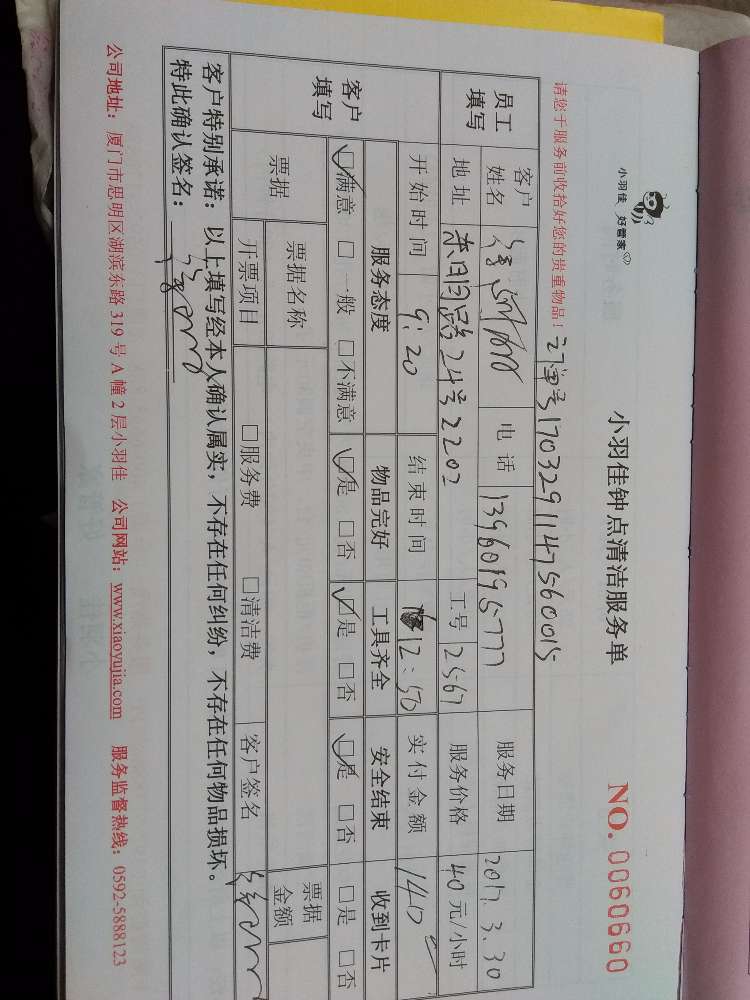 小羽佳 好管家
小羽佳钟点清洁服务单
NO. 0060660
请您于服务前收拾好您的贵重物品！ 订单号1703291147560015
员工填写 客户姓名 电话 13960195777 服务日期 2017.3.30
地址 24号2202 工号 2567 服务价格 40元/小时
开始时间 9:20 结束时间 12:50 实付金额 140
客户填写 服务态度 物品完好 工具齐全 安全结束 收到卡片
☑满意 □一般 □不满意 ☑是 □否 ☑是 □否 ☑是 □否 □是 □否
票据 票据名称 票据金额
开票项目 □服务费 □清洁费 客户签名
客户特别承诺：以上填写经本人确认属实，不存在任何纠纷，不存在任何物品损坏。
特此确认签名：
公司地址：厦门市思明区湖滨东路319号A幢2层小羽佳 公司网站：www.xiaoyujia.com 服务监督热线：0592-5888123